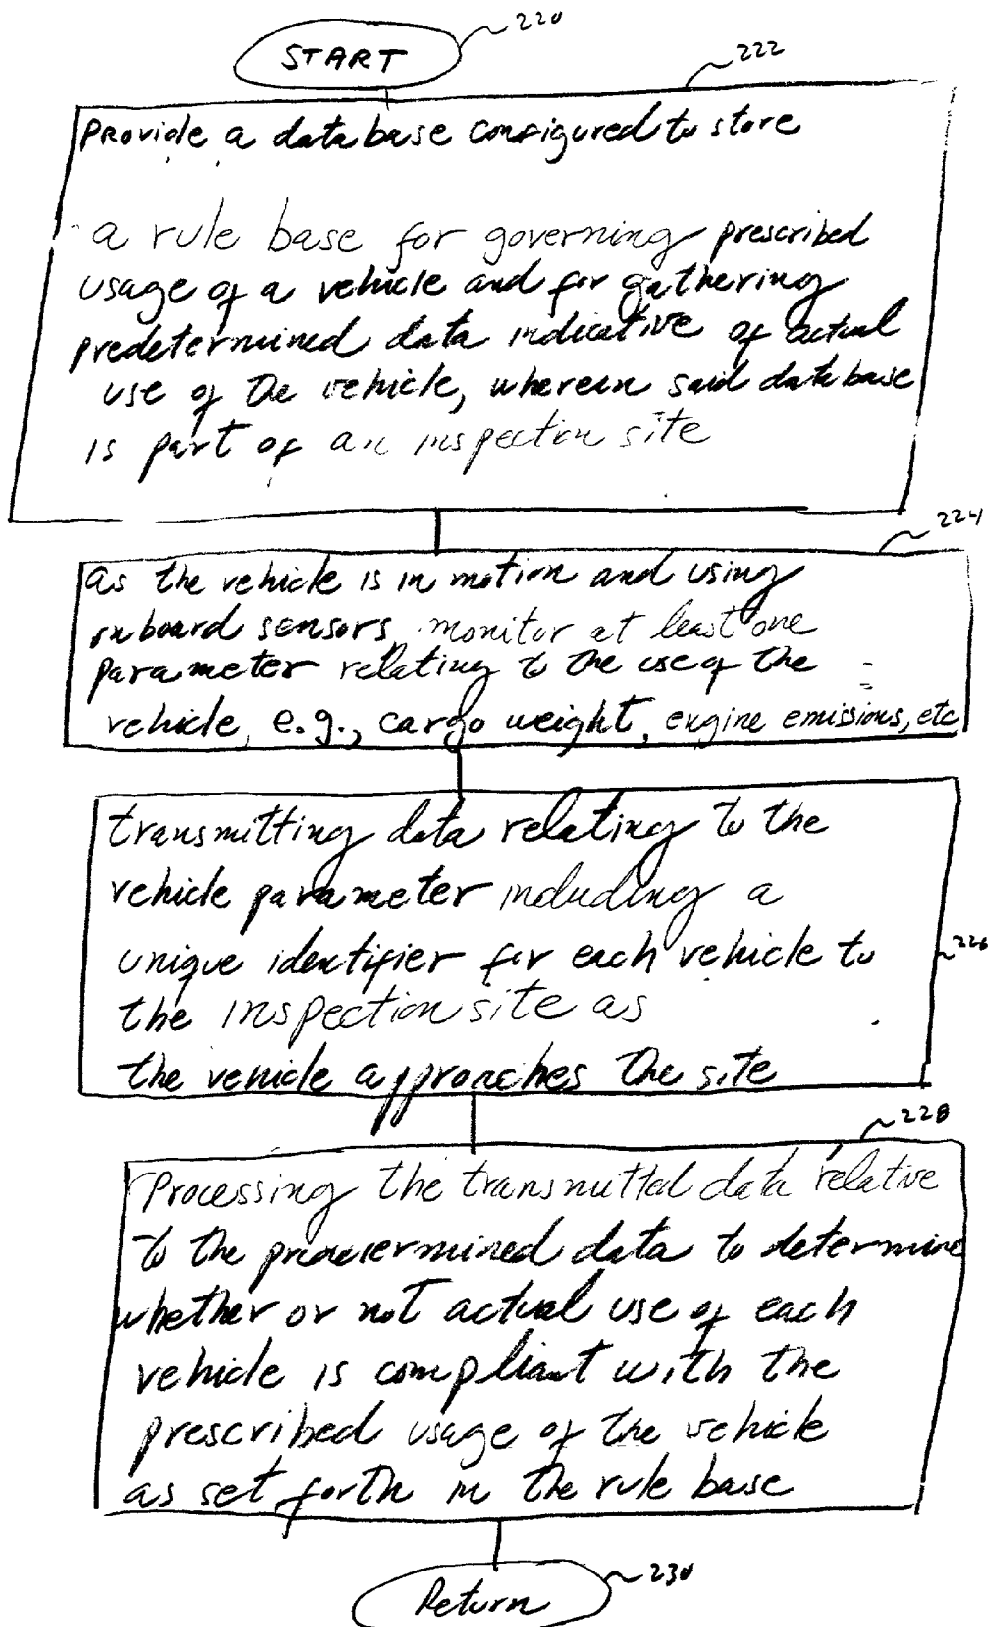 220
START
222
Provide a database configured to store
a rule base for governing prescribed
usage of a vehicle and for gathering
predetermined data indicative of actual
use of the vehicle, wherein said database
is part of an inspection site
224
as the vehicle is in motion and using
onboard sensors, monitor at least one
parameter relating to the use of the
vehicle, e.g., cargo weight, engine emissions, etc
transmitting data relating to the
vehicle parameter including a
unique identifier for each vehicle to
226
the inspection site as
the vehicle approaches the site
228
Processing the transmitted data relative
to the predetermined data to determine
whether or not actual use of each
vehicle is compliant with the
prescribed usage of the vehicle
as set forth in the rule base
230
Return